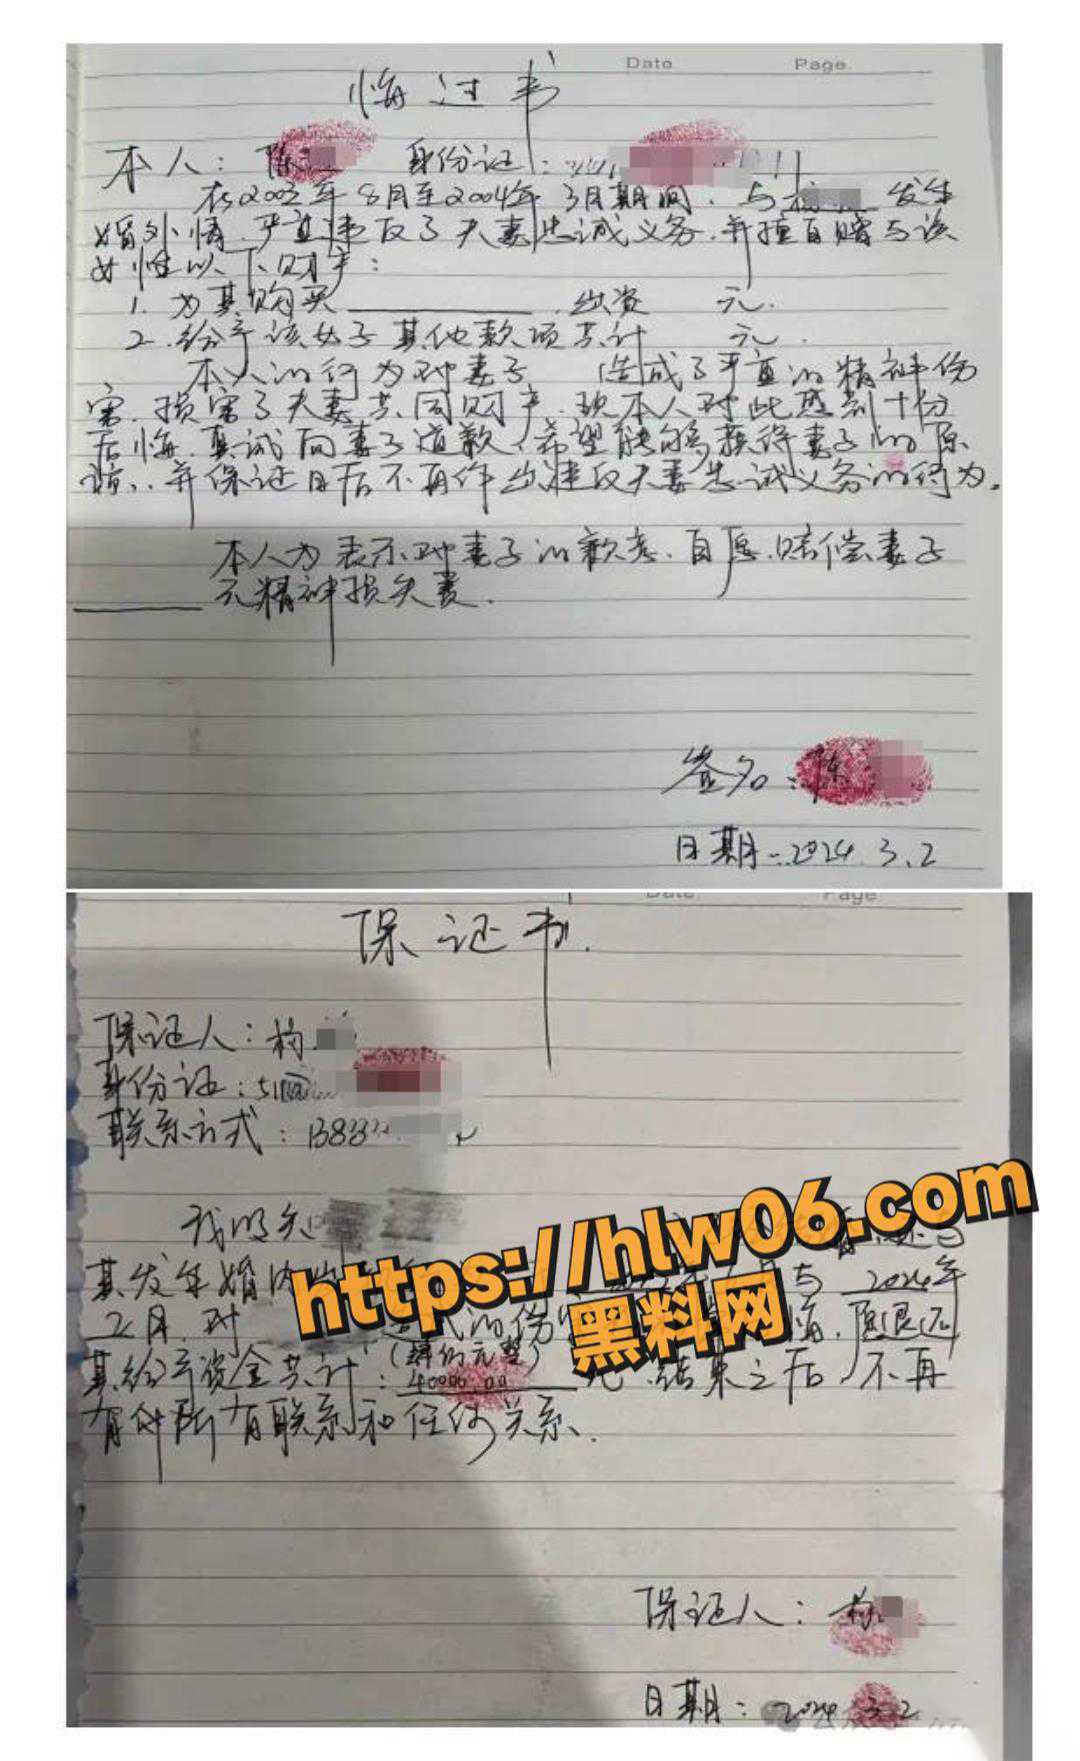 Date Page.
悔过书
本人：陈 身份证：
在2002年8月至2004年3月期间，与 发生
婚外情，严重违反了夫妻忠诚义务，并擅自赠与该
女性以下财产：
1. 为其购买 出资 元.
2. 给予该女子其他款项共计 元.
本人的行为对妻子 造成了严重的精神伤
害，损害了夫妻共同财产，现本人对此感到十分
后悔，真诚向妻子道歉，希望能够获得妻子的原
谅，并保证日后不再作出违反夫妻忠诚义务的行为。
本人为表示对妻子的歉意，自愿赔偿妻子
元精神损失费.
签名：陈
日期：2024.3.2
Date Page
保证书.
保证人：杨
身份证：
联系方式：
我明知
其发生婚内 与 2024年
2月，对 造成的伤 愿退还
其给予资金共计：(肆仟元整) 40000.00 元，结束之后，不再
有任何联系和任何关系.
https://hlw06.com
黑料网
保证人：杨
日期：2024 3.2